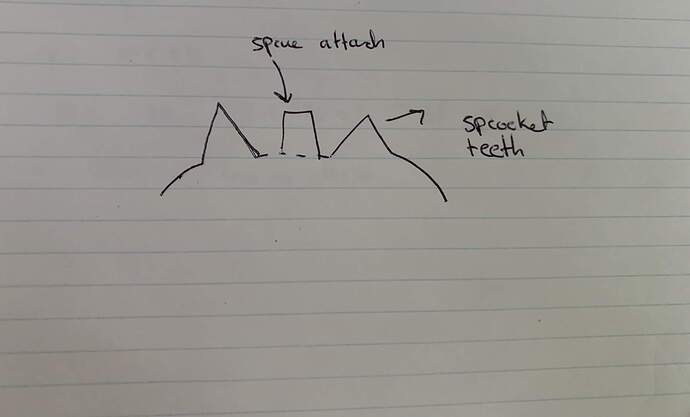 sprue attach
sprocket
teeth